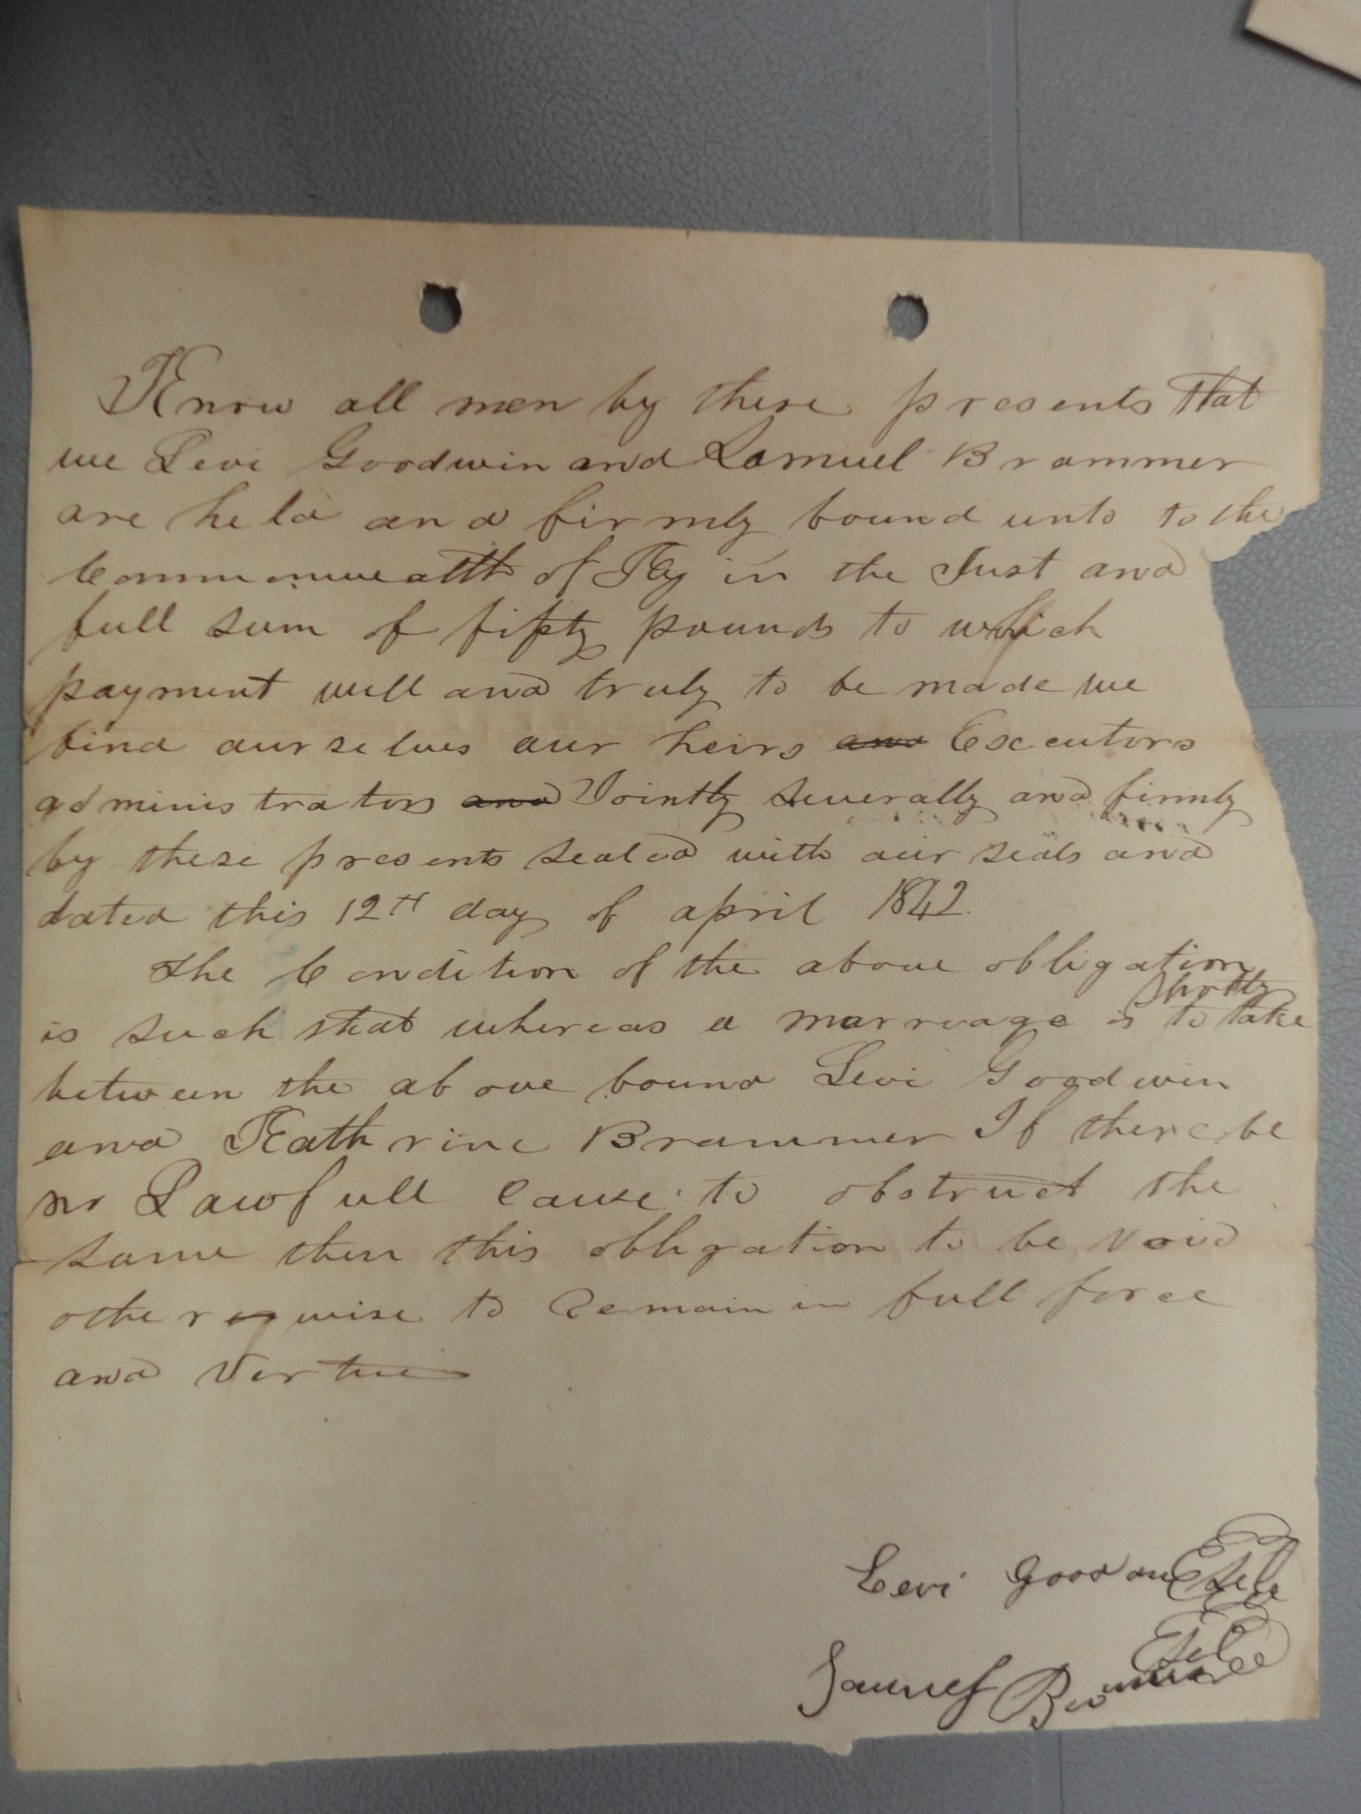 Know all men by these presents That
we Levi Goodwin and Samuel Brammer
are held and firmly bound unto to the
Commonwealth of Ky in the Just and
full sum of fifty pounds to which
payment well and truly to be made we
bind ourselves our heirs and Executors
administrators and Jointly severally and firmly
by these presents sealed with our seals and
dated this 12th day of april 1842
The Condition of the above obligation
shortly
is such that whereas a marriage is to take
between the above bound Levi Goodwin
and Kathrine Brammer If there be
no Lawfull cause to obstruct the
same then this obligation to be void
otherwise to Remain in full force
and Vertue
Levi
Samuel